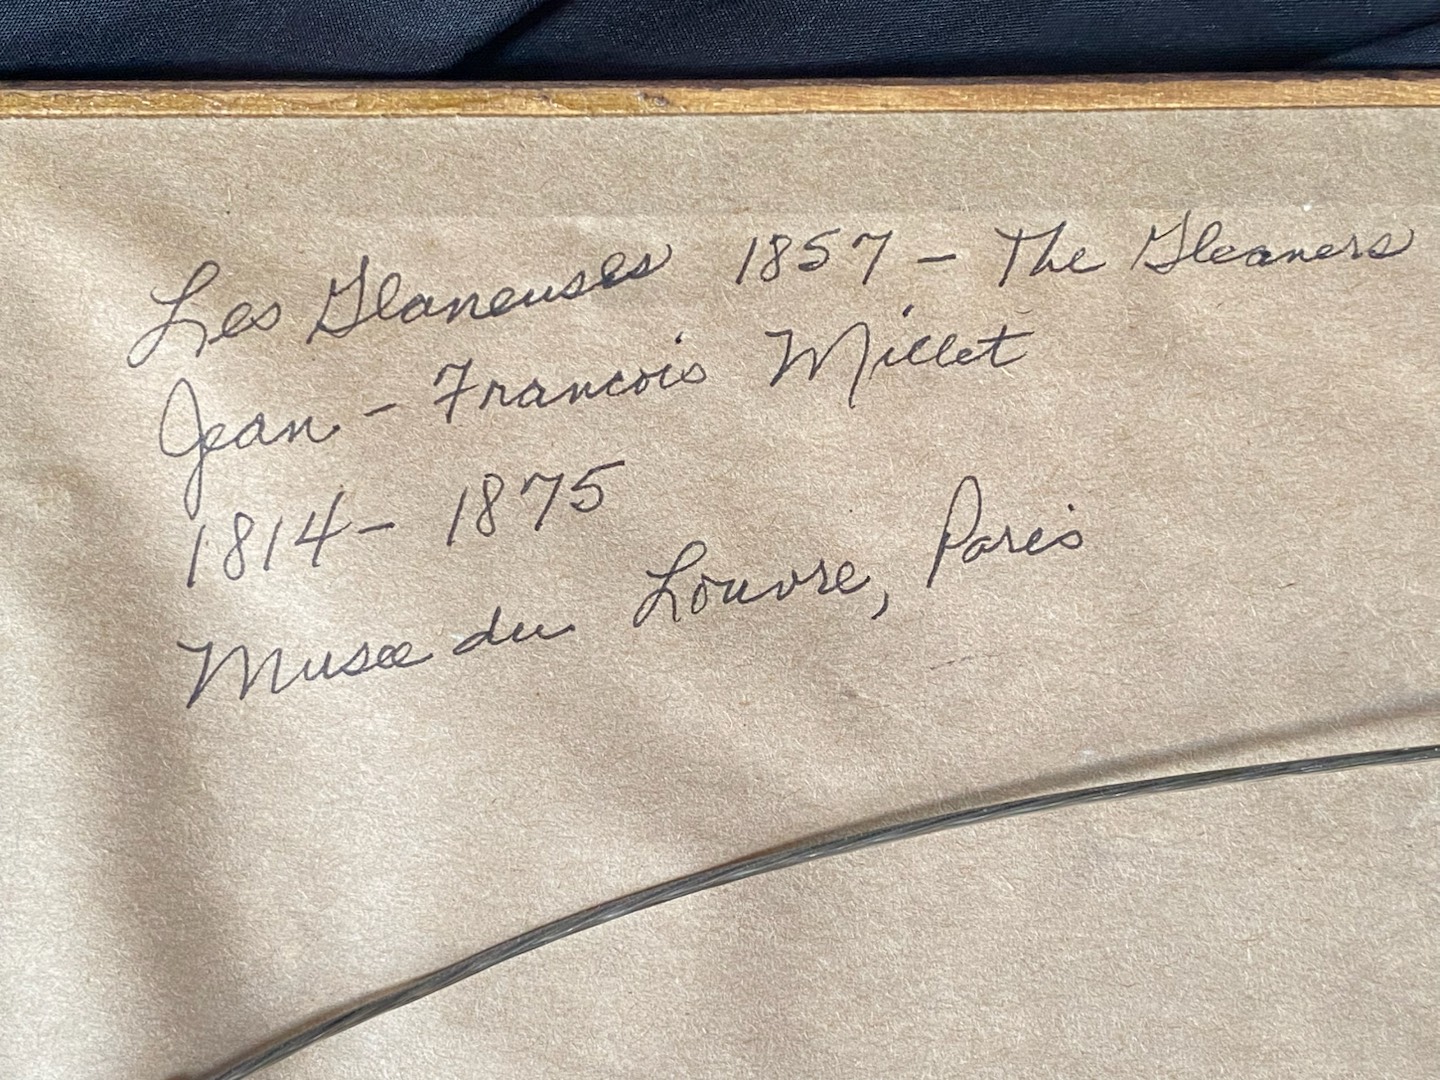 Les Glaneuses 1857 - The Gleaners
Jean - Francois Millet
1814 - 1875
Musee du Louvre, Paris